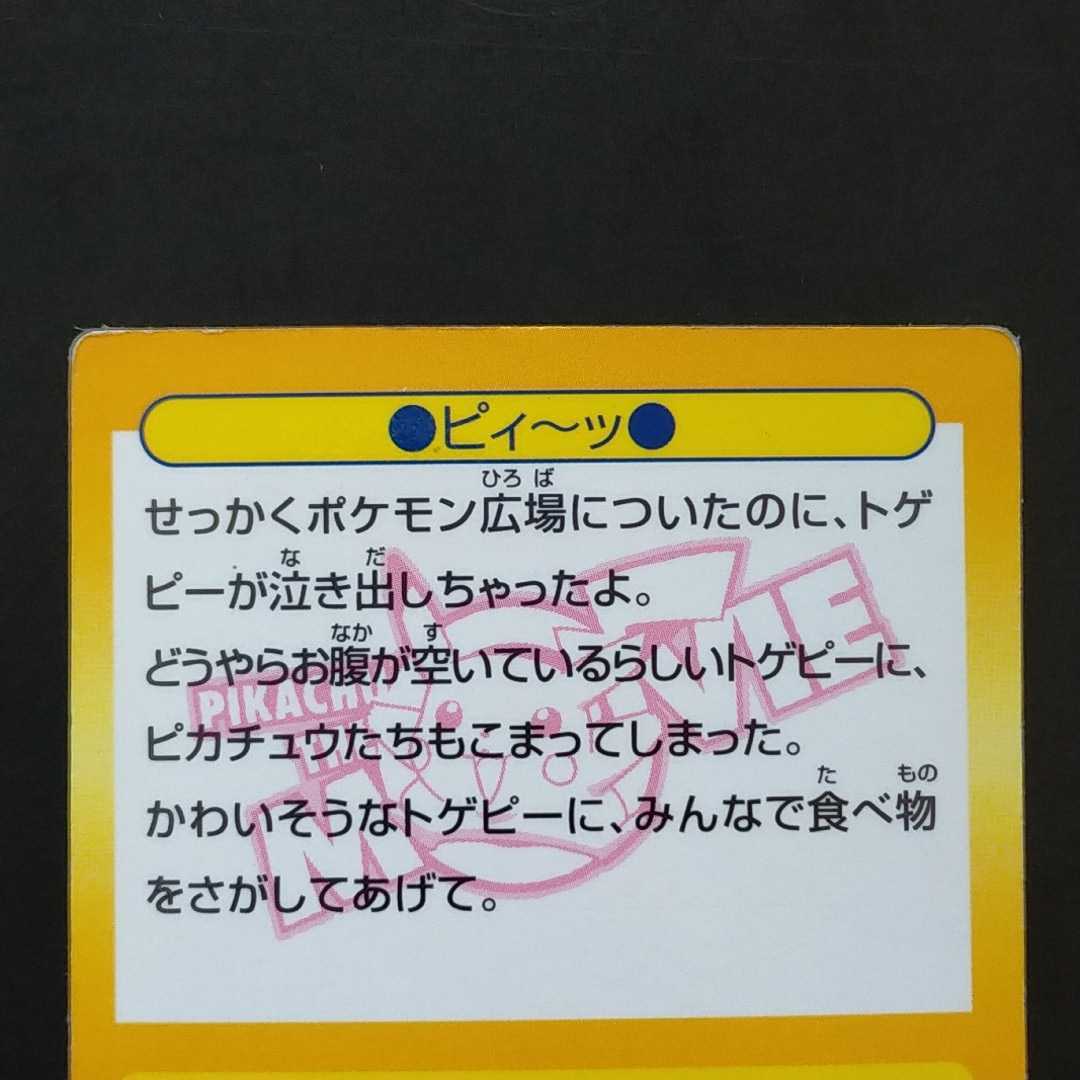 ●ピィ～ッ●
ひろ ば
せっかくポケモン広場についたのに、トゲ
な だ
ピーが泣き出しちゃったよ。
なか す
どうやらお腹が空いているらしいトゲピーに、
ピカチュウたちもこまってしまった。
た もの
かわいそうなトゲピーに、みんなで食べ物
をさがしてあげて。